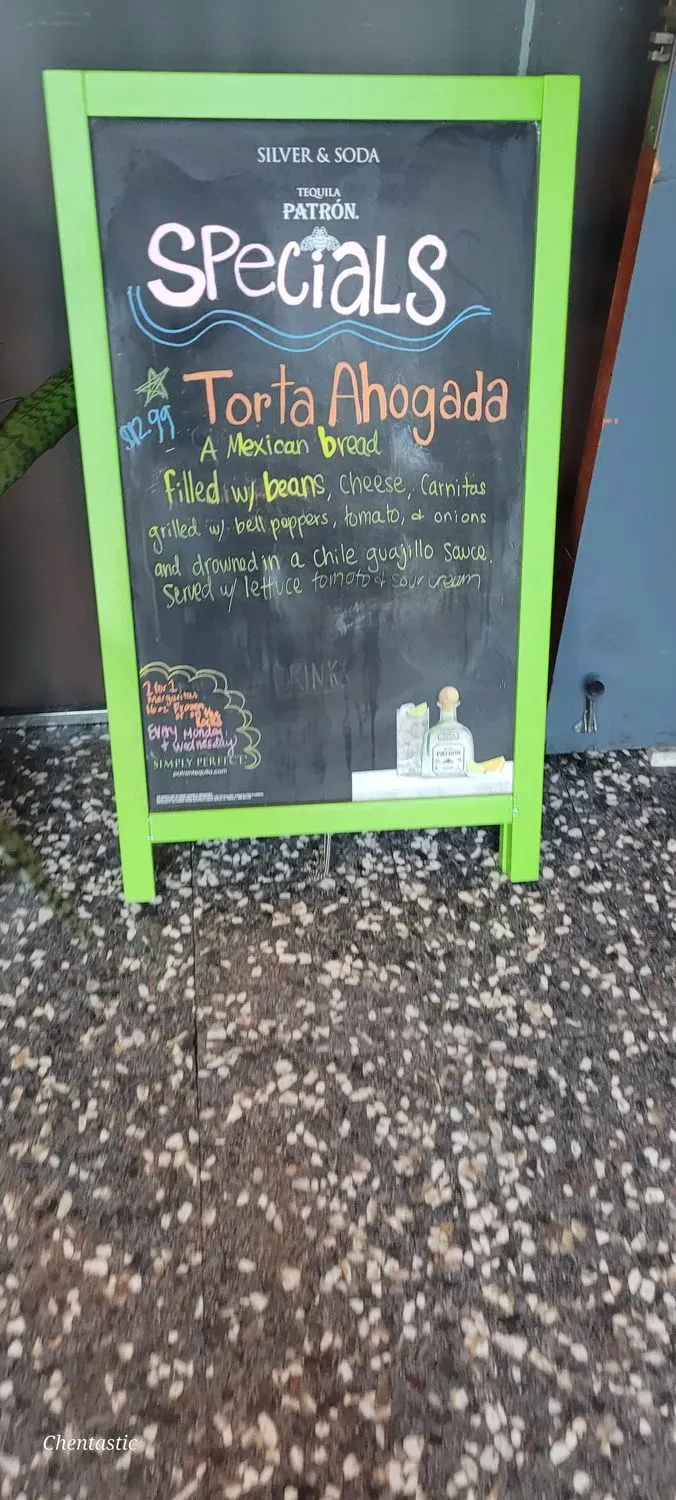 SILVER & SODA
TEQUILA
PATRÓN.
SPeciaLS
$12.99
Torta Ahogada
A Mexican bread
filled w/ beans, cheese, Carnitas
grilled w/ bell peppers, tomato, & onions
and drowned in a chile guajillo sauce.
Served w/ lettuce tomato & sour cream
DRINKS
2 for 1
margaritas
16oz Frozen
or on the
Rocks
Every Monday
+ Wednesday!
SIMPLY PERFECT.
patrontequila.com
PATRÓN
Chentastic